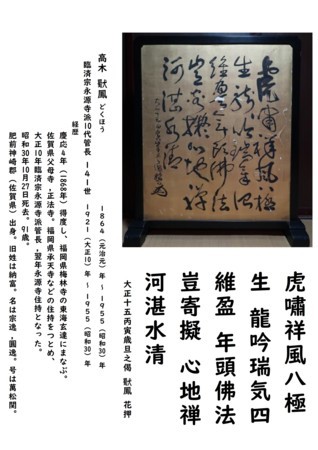 虎嘯祥風八極
生龍吟瑞気四
維盈年頭佛法
豈寄擬心地禅
河湛水清
虎嘯祥風八極
生 龍吟瑞気四
維盈 年頭佛法
豈寄擬 心地禅
河湛水清
大正十五丙寅歳旦之偈 獣鳳 花押
高木 獣鳳 どくほう
1864(元治元)年 ~ 1955(昭和30)年
臨済宗永源寺派10代管長 141世 1921(大正10)年 ~ 1955(昭和30)年
経歴
慶応4年(1868年)得度し、福岡県梅林寺の東海玄達にまなぶ。
佐賀県父母寺,正法寺。福岡県承天寺などの住持をつとめ、
大正10年臨済宗永源寺派管長,翌年永源寺住持となった。
昭和30年10月27日死去。91歳。
肥前神崎郡(佐賀県)出身。旧姓は納富。名は宗逸,圓逸。号は萬松関。